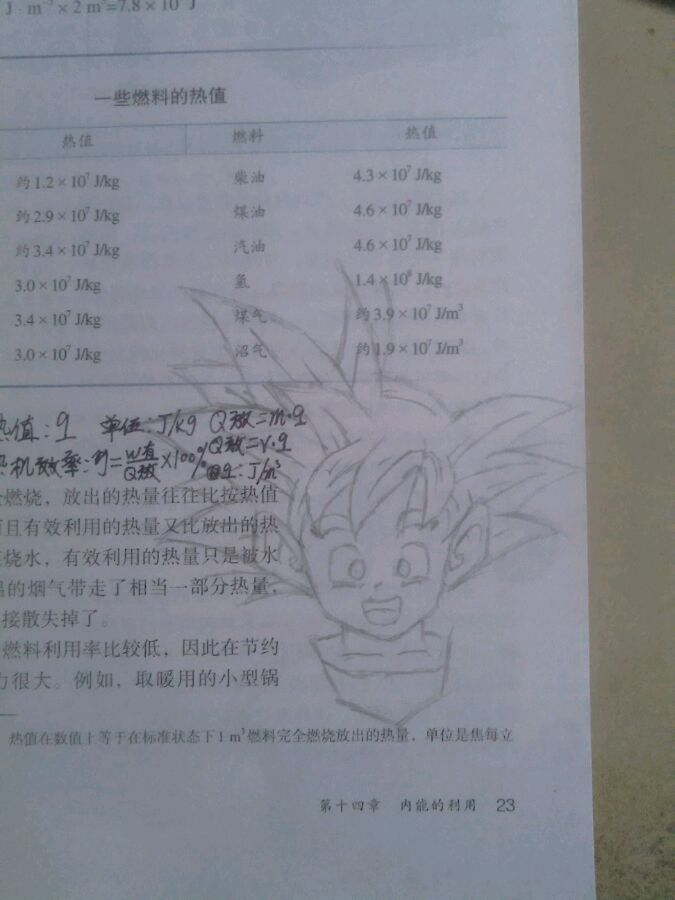 J · m⁻³ × 2 m³=7.8 × 10⁷ J
一些燃料的热值
热值 燃料 热值
约 1.2 × 10⁷ J/kg 柴油 4.3 × 10⁷ J/kg
约 2.9 × 10⁷ J/kg 煤油 4.6 × 10⁷ J/kg
约 3.4 × 10⁷ J/kg 汽油 4.6 × 10⁷ J/kg
3.0 × 10⁷ J/kg 氢 1.4 × 10⁸ J/kg
3.4 × 10⁷ J/kg 煤气 约 3.9 × 10⁷ J/m³
3.0 × 10⁷ J/kg 沼气 约 1.9 × 10⁷ J/m³
热值: q 单位: J/kg Q放=m·q
热机效率: η=W有/Q放×100% Q放=v·q
q: J/m³
燃烧，放出的热量往往比按热值
而且有效利用的热量又比放出的热
烧水，有效利用的热量只是被水
的烟气带走了相当一部分热量，
接散失掉了。
燃料利用率比较低，因此在节约
力很大。例如，取暖用的小型锅
热值在数值上等于在标准状态下 1 m³ 燃料完全燃烧放出的热量，单位是焦每立
第十四章 内能的利用 23